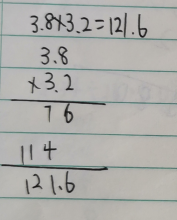 3.8×3.2=121.6
3.8
×3.2
76
114
121.6